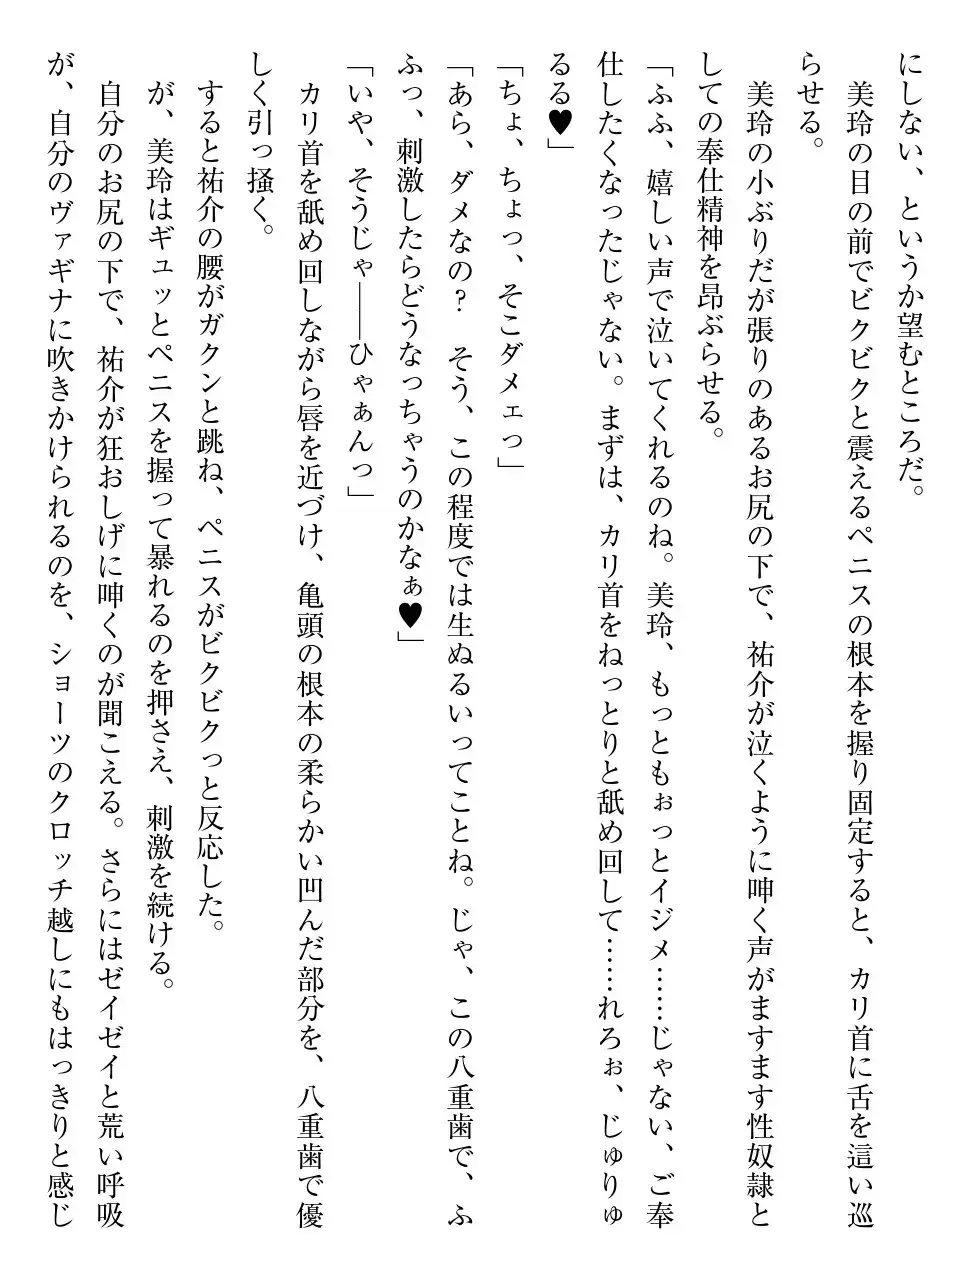 にしない、というか望むところだ。
　美玲の目の前でビクビクと震えるペニスの根本を握り固定すると、カリ首に舌を這い巡
らせる。
　美玲の小ぶりだが張りのあるお尻の下で、祐介が泣くように呻く声がますます性奴隷と
しての奉仕精神を昂ぶらせる。
「ふふ、嬉しい声で泣いてくれるのね。美玲、もっともぉっとイジメ……じゃない、ご奉
仕したくなったじゃない。まずは、カリ首をねっとりと舐め回して……れろぉ、じゅりゅ
るる♥」
「ちょ、ちょっ、そこダメェっ」
「あら、ダメなの？　そう、この程度では生ぬるいってことね。じゃ、この八重歯で、ふ
ふっ、刺激したらどうなっちゃうのかなぁ♥」
「いや、そうじゃ――ひゃぁんっ」
　カリ首を舐め回しながら唇を近づけ、亀頭の根本の柔らかい凹んだ部分を、八重歯で優
しく引っ掻く。
　すると祐介の腰がガクンと跳ね、ペニスがビクビクっと反応した。
　が、美玲はギュッとペニスを握って暴れるのを押さえ、刺激を続ける。
　自分のお尻の下で、祐介が狂おしげに呻くのが聞こえる。さらにはゼイゼイと荒い呼吸
が、自分のヴァギナに吹きかけられるのを、ショーツのクロッチ越しにもはっきりと感じ